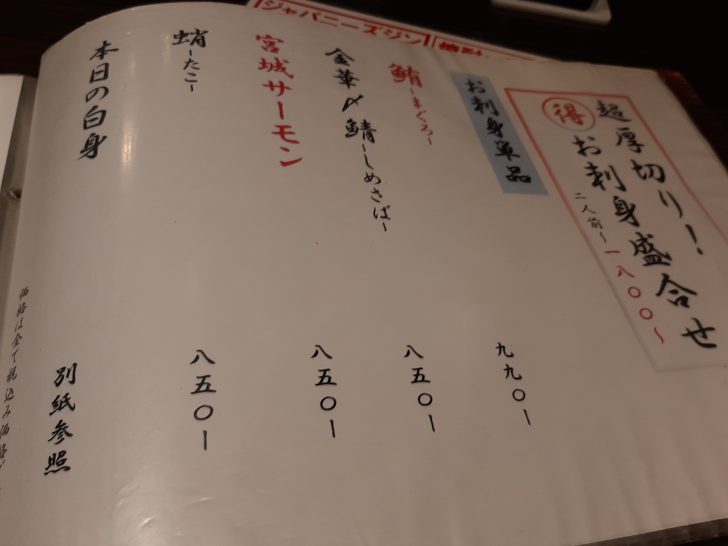 ジャパニーズジン
超厚切り！
得 お刺身盛合せ
二人前〜一八〇〇〜
お刺身単品
鮪〜まぐろ〜
九九〇ー
金華〆鯖〜しめさば〜
八五〇ー
宮城サーモン
八五〇ー
蛸〜たこ〜
八五〇ー
本日の白身
別紙参照
価格は全て税込み価格